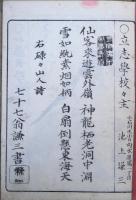 ○立志學校々主
池上謙三
仙客來遊雲外巓 神龍栖老洞中淵
雪如紈素烟如柄 白扇倒懸東海天
右碌々山人詩
七十七翁謙三書